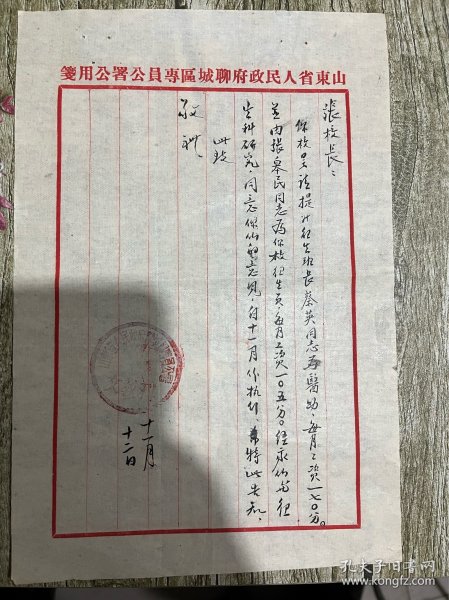 山東省人民政府聊城區專員公署公用箋
張校長：
你校呈請提升衛生班長蔡英同志為醫助，每月工資一七〇分。
並由張皋民同志為你校衛生員，每月工資一〇五分。經我們與衛
生科研究，同意你們的意見，自十一月份執行，特此告知，
此致
敬礼、
十一月
十二日
孔夫子旧书网
www.kongfz.com